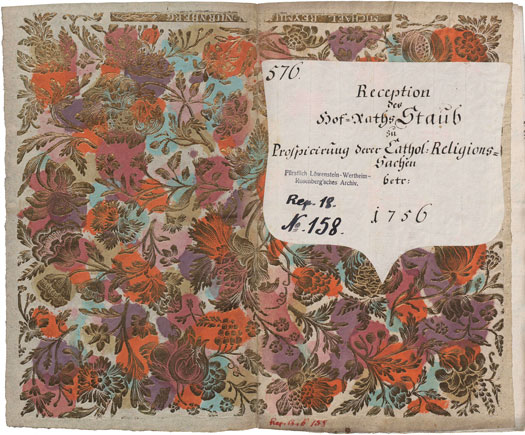 MICHAEL REYMUND
NÜRNBERG
576.
Reception
des
Hof-Raths Staub
zu
Prospicirung derer Cathol: Religions-
Sachen
betr:
Fürstlich Löwenstein-Wertheim-
Rosenberg'sches Archiv.
Rep. 18.
No. 158.
1756